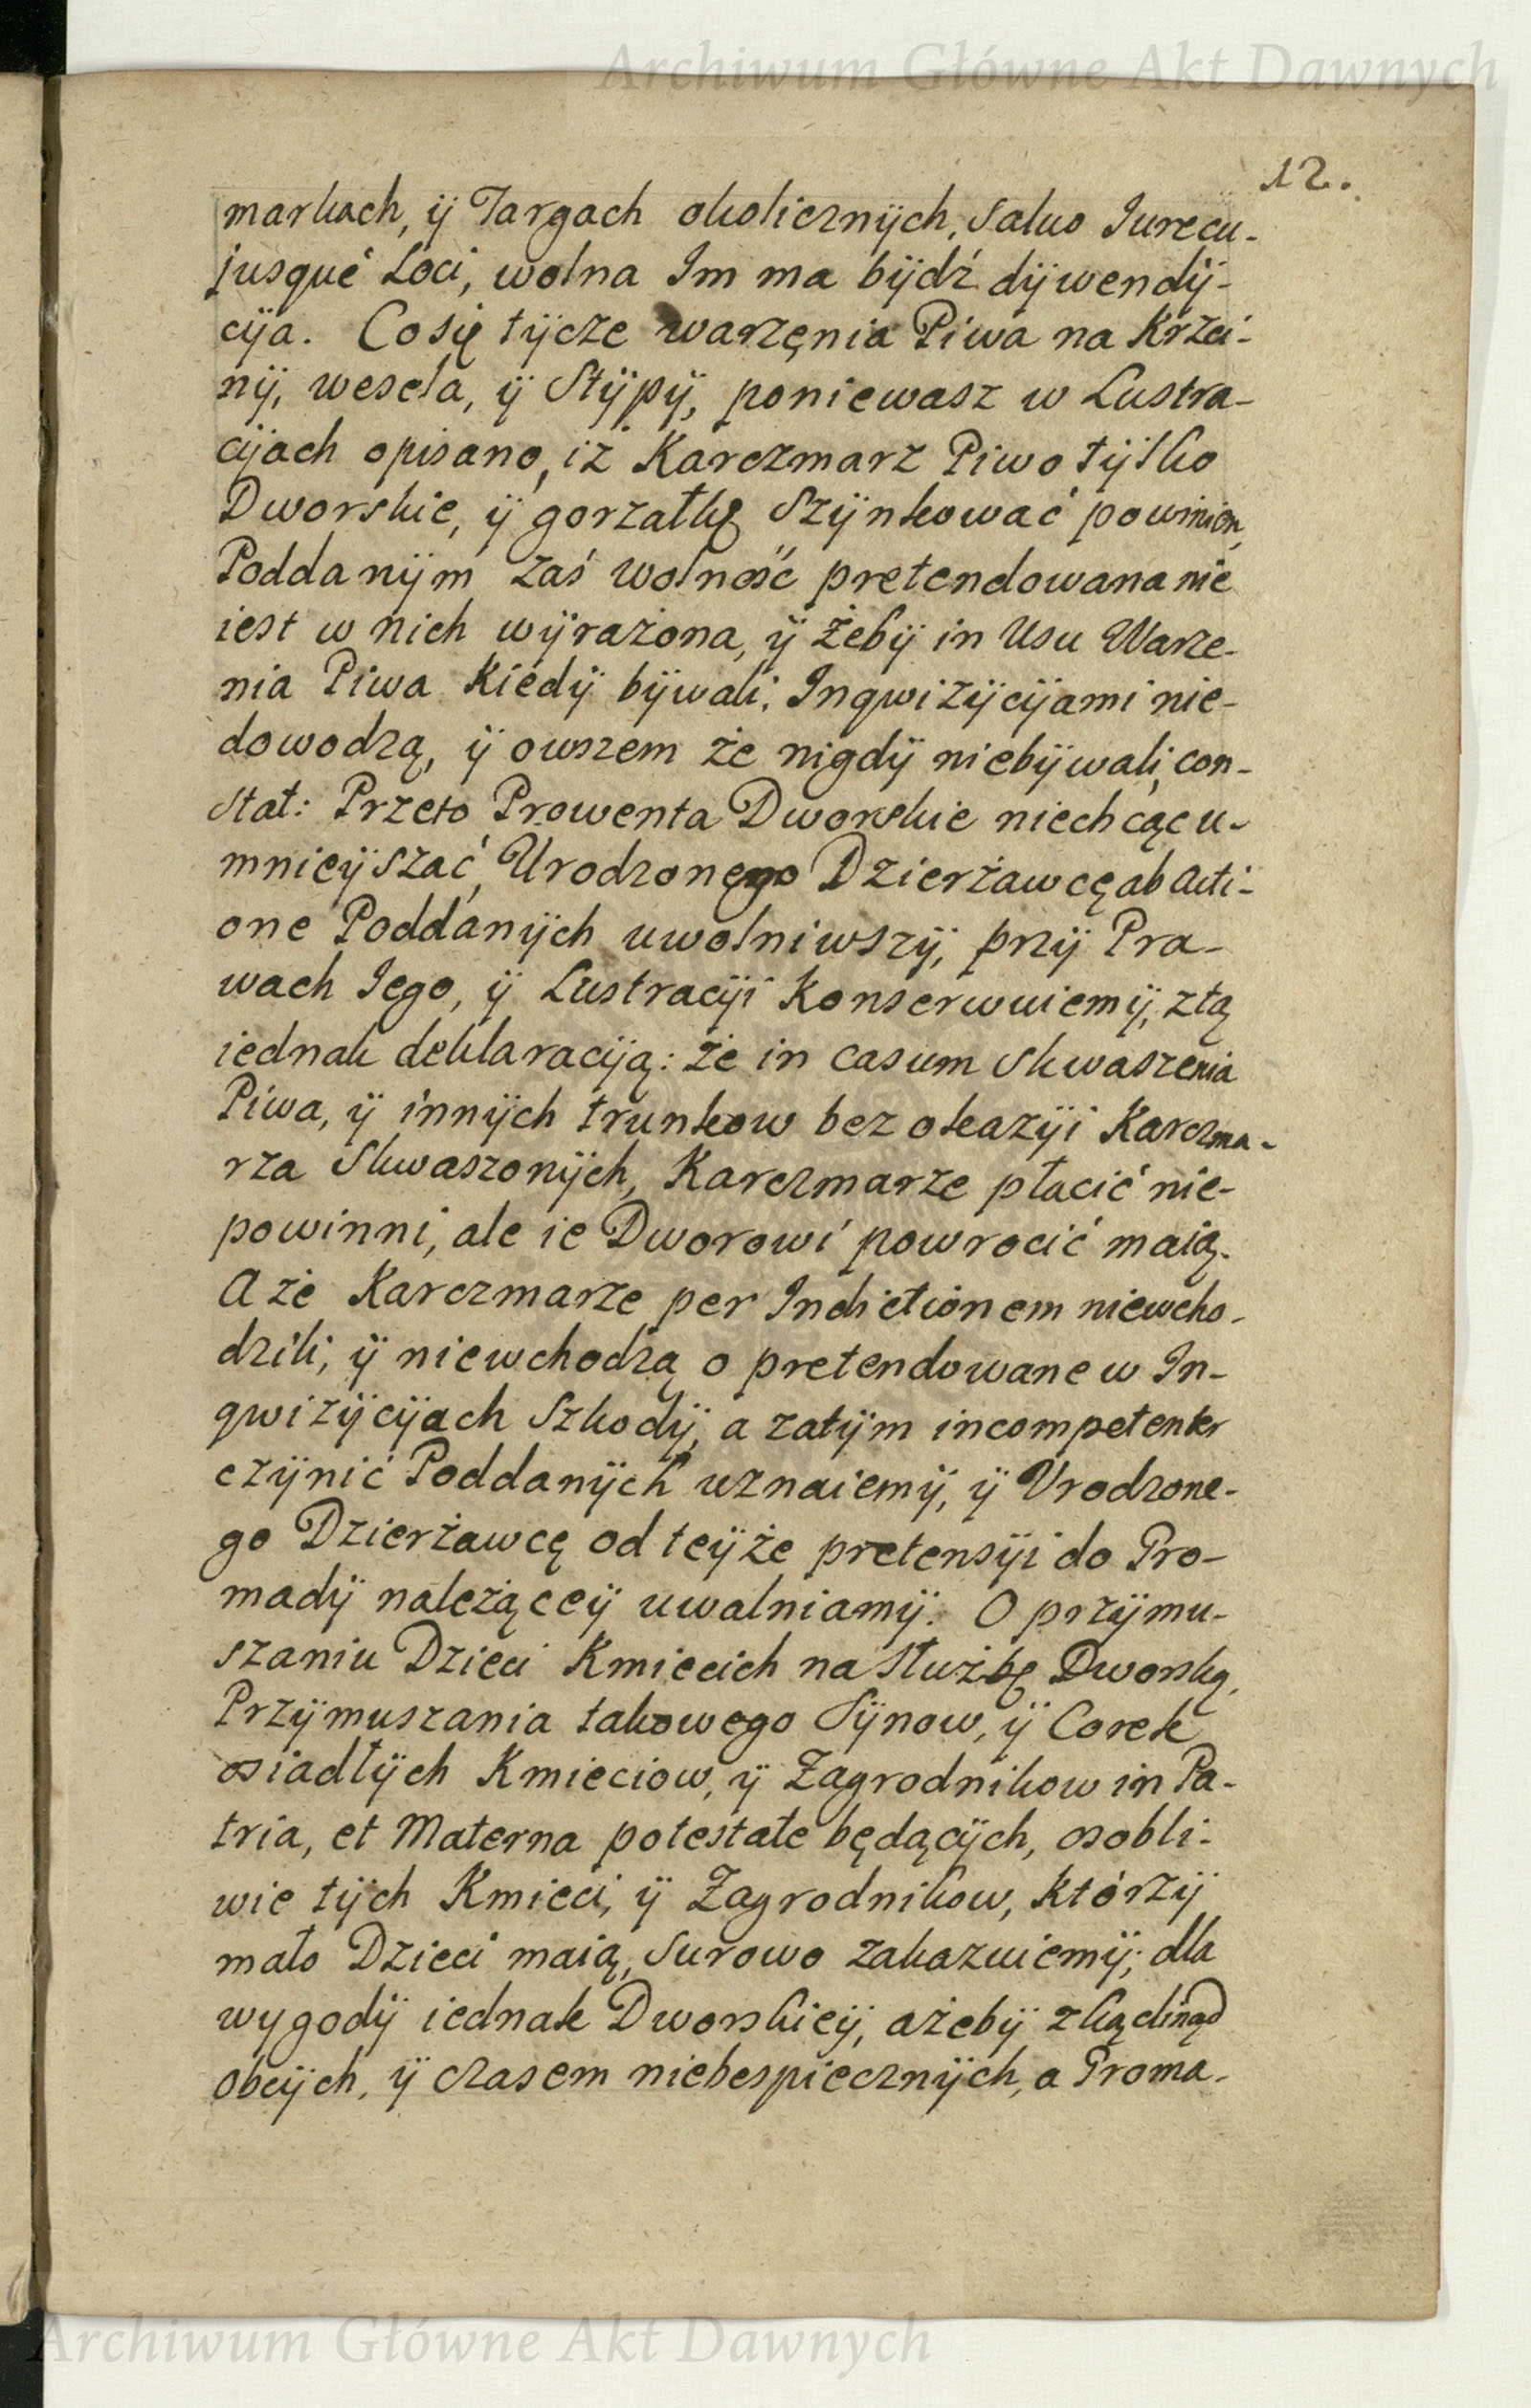 Archiwum Główne Akt Dawnych
12.
markach, ÿ Targach okolicznÿch, Salvo Jurecu-
jusque Loci, wolna Im ma bÿdź dÿwendÿ-
cÿa. Cosię tÿcze warzęnia Piwa na Krzci-
nÿ, wesela, ÿ Stÿpÿ, poniewasz w Lustra-
cÿach opisano, iż Karczmarz Piwo tÿlko
Dworskie, ÿ gorzałkę Szÿnkować powinien,
Poddanÿm zaś wolność pretendowana nie
iest w nich wÿrażona, ÿ żebÿ in Usu Warze-
nia Piwa Kiedÿ bÿwali, Ingwizÿcÿami nie-
dowodzą, ÿ owszem że nigdÿ niebÿwali, con-
stat: Przeto Prowenta Dworskie niechcąc u-
mnieÿszać, Urodzonego Dzierżawcę ab acti-
one Poddanÿch uwolniwszÿ, przÿ Pra-
wach Jego, ÿ Lustracÿi Konserwuiemÿ, ztą
iednak deklaracÿą: że in casum Skwaszenia
Piwa, ÿ innÿch trunkow bez okazÿi Karczma-
rza Skwaszonÿch, Karczmarze płacić nie-
powinni, ale ie Dworowi powrocić maią.
A że Karczmarze per Indictionem niewcho-
dzili, ÿ niewchodzą o pretendowane w In-
gwizÿcÿach Szkodÿ, a zatÿm incompetenter
czÿnić Poddanÿch uznaiemÿ, ÿ Vrodzone-
go Dzierżawcę od teÿże pretensÿi do Gro-
madÿ należąceÿ uwalniamÿ. O przÿmu-
szaniu Dzieci Kmiecich na służbę Dworską.
Przÿmuszania takowego Sÿnow, ÿ Corek
osiadłÿch Kmieciow, ÿ Zagrodnikow in Pa-
tria, et Materna potestate będącÿch, osobli-
wie tÿch Kmieci, ÿ Zagrodnikow, którzÿ
mało Dzieci maią, Surowo zakazuiemÿ; dla
wygodÿ iednak Dworskieÿ, ażebÿ zkądinąd
obcÿch, ÿ czasem niebespiecznÿch, a Groma-
Archiwum Główne Akt Dawnych